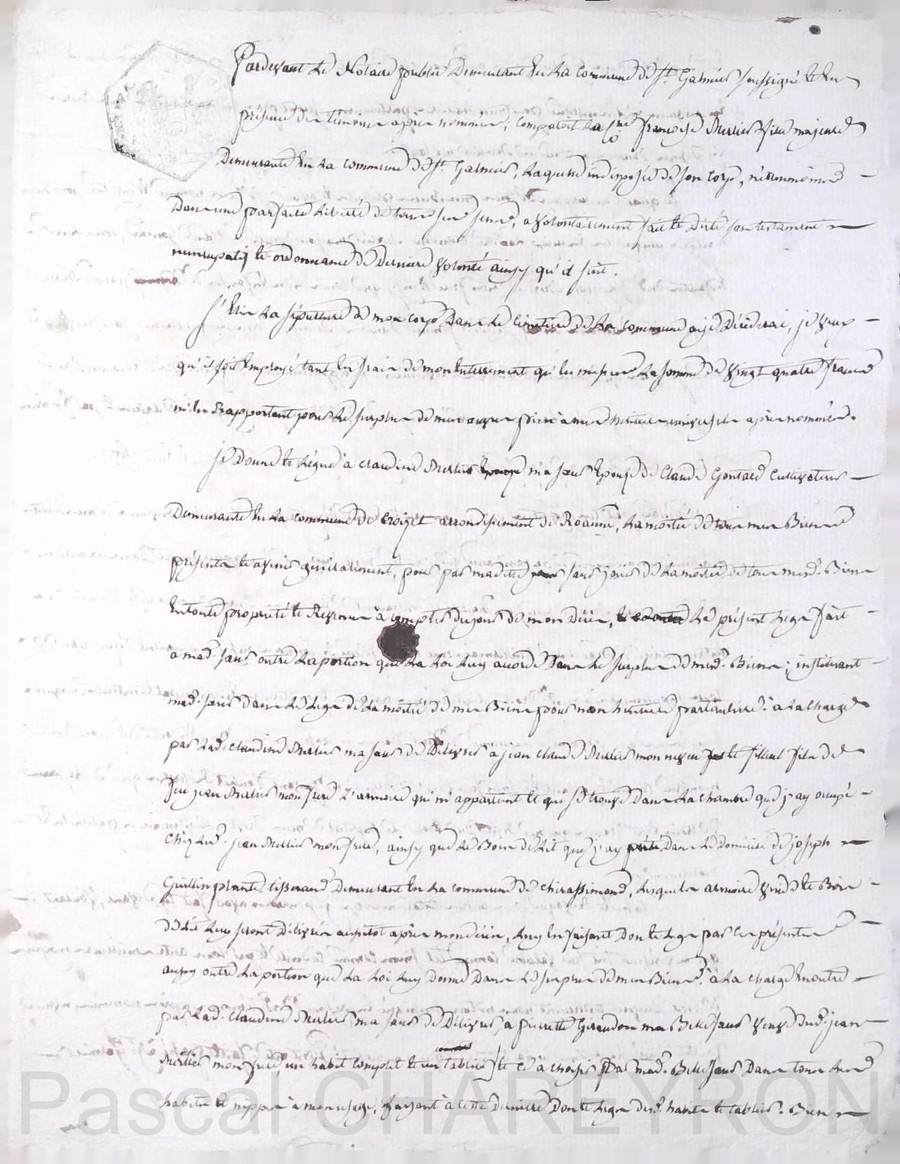 Pardevant le Notaire public Demeurant en la Commune de St. Galmier soussigné et en
présence des témoins après nommés; comparut la Cne françoise Merlier fille majeure
Demeurante en la commune de St. Galmier, laquelle indisposée de son corps, néanmoins
Dans une parfaite liberté de tous ses sens, a volontairement fait et dicté son testament
nuncupatif et ordonnance de Dernière volonté ainsy qu'il suit.
J'élis la sépulture de mon corps Dans le cimetière de la commune où je Décéderai, je veux
qu'il soit employé tant en frais de mon enterrement qu'en messes la somme de vingt quatre francs
m'en rapportant pour le surplus de mes œuvres pies à mes héritiers après nommés.
je Donne et lègue à claudine Merlier ma sœur épouse de Claude Gontard Cultivateur
Demeurante en la commune de Croizet arrondissement de Roanne, la moitié de tous mes Biens
présents et avenir généralement, pour par madite sœur jouir de la moitié de tous mesd. Biens
en toute propriété et Revenus à compter du jour de mon Décès, le présent legs fait
à mad. sœur outre la portion que la loi luy accorde Dans le surplus de mesd. Biens; instituant
mad. sœur Dans le legs de la moitié de mes Biens pour mon héritière particulière. à la charge
par lad. claudine Merlier ma sœur de Délivrer à jean claude Merlier mon neveu et filleul fils de
feu jean Merlier mon frère l'armoire qui m'appartient et qui se trouve Dans la chambre que j'ay occupé
chez led. jean Merlier mon frère, ainsy que le Bois de lit que j'ay prêté Dans le Domicile de joseph
tisserand Demeurant en la commune de chirassimond, lesquels armoire et Bois
de lit luy seront Délivrés aussitôt après mon décès, luy en faisant Don et legs par ces présentes
aussy outre la portion que la Loi luy donne Dans le surplus de mes Biens. à la charge en outre
par lad. Claudine Merlier ma sœur de Délivrer à pierrette Giraudon ma Belle sœur veuve dud. jean
Merlier mon frère un habit complet et un tablier à choisir par mad. Belle sœur Dans tous les
habits et nippes à mon usage, faisant à cette dernière Don et legs desd. habits et tablier. Bien
Pascal CHAREYRON